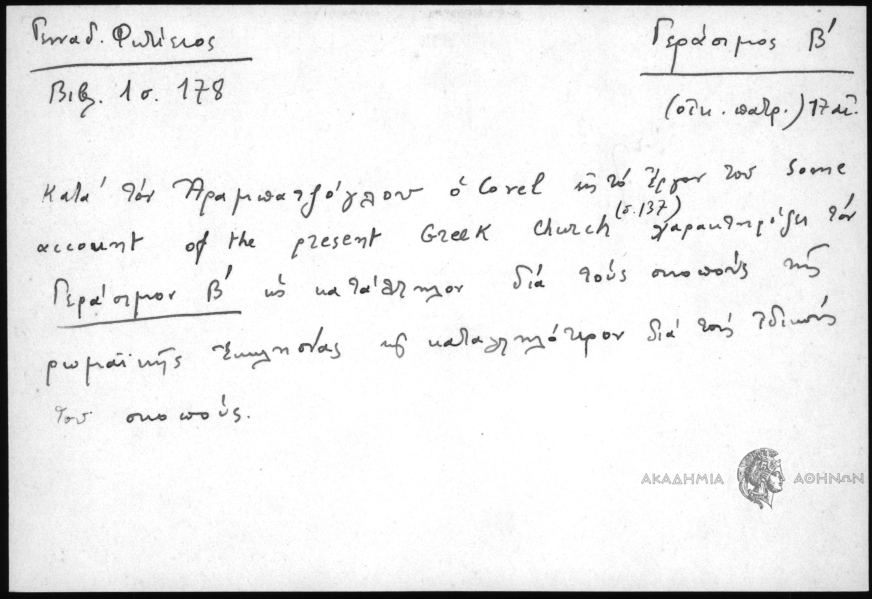 Γενναδ. Φωτίειος
Βιβλ. 1 σ. 178
Γεράσιμος Β'
(οἰκ. πατρ.) 17 αἰ.
Κατά τόν Ἀραμπατζόγλου ὁ Covel εἰς τό ἔργον του Some
account of the present Greek Church (σ. 137) χαρακτηρίζει τόν
Γεράσιμον Β' ὡς κατάλληλον διά τούς σκοπούς τῆς
ρωμαϊκῆς Ἐκκλησίας καί καταλληλότερον διά τούς ἰδικούς
του σκοπούς.
ΑΚΑΔΗΜΙΑ ΑΘΗΝΩΝ